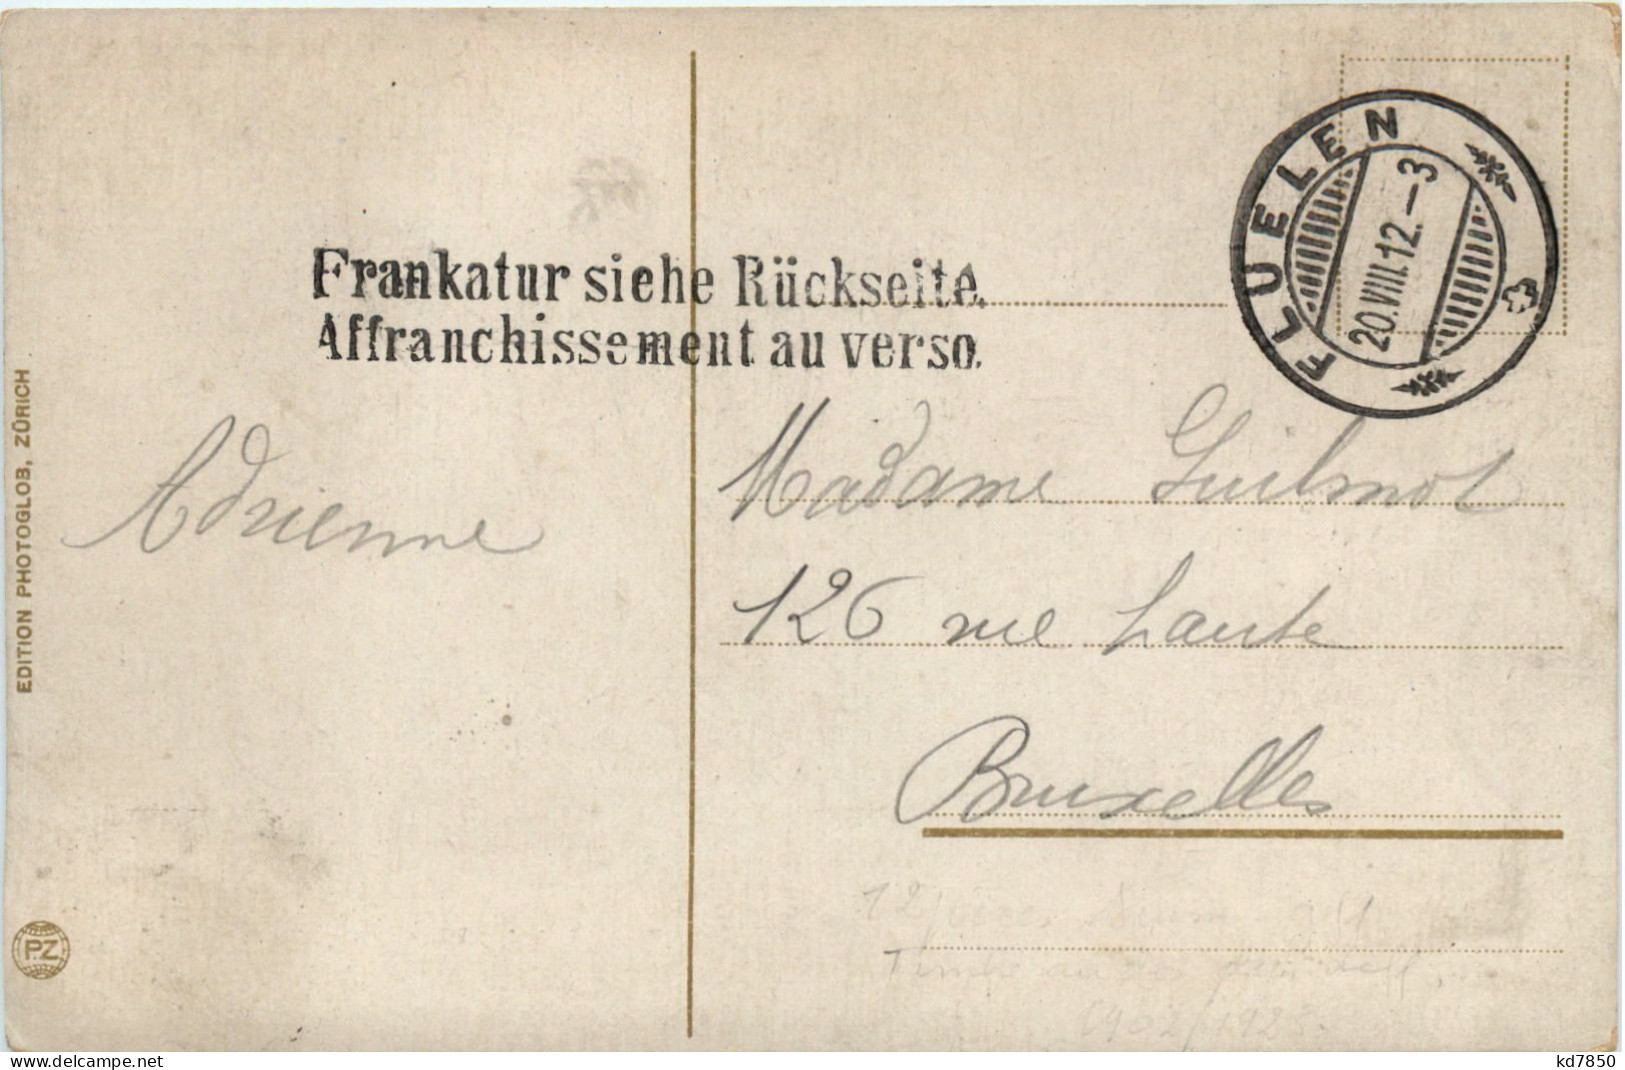 FLUELEN
20.VIII.12.–3
Frankatur siehe Rückseite.
Affranchissement au verso.
Adrienne
Madame Guilmot
126 rue haute
Bruxelles
1902/1928.
EDITION PHOTOGLOB, ZÜRICH
P.Z
www.delcampe.net
kd7850